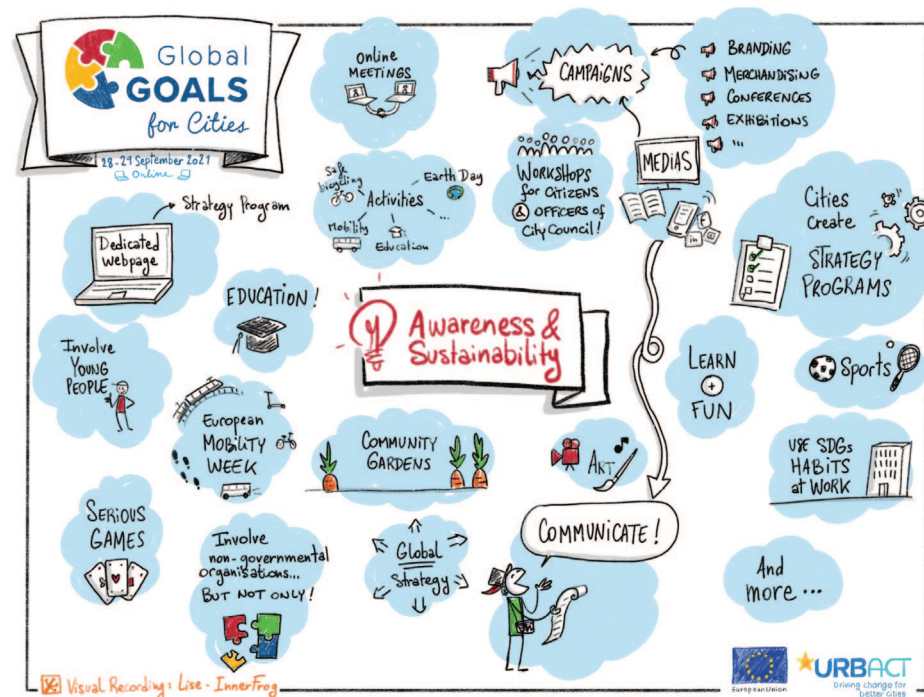 Global
GOALS
for Cities
28-29 September 2021
Online
Online
MEETINGS
CAMPAIGNS
BRANDING
MERCHANDISING
CONFERENCES
EXHIBITIONS
...
MEDIAS
f
in
Safe
bicycling
Earth Day
Activities
...
Mobility
Education
WORKSHOPS
for CITIZENS
& OFFICERS of
City COUNCIL!
Cities
Create
STRATEGY
PROGRAMS
Dedicated
webpage
Strategy Program
EDUCATION!
Awareness &
Sustainability
Involve
YOUNG
PEOPLE
European
MOBILITY
WEEK
COMMUNITY
GARDENS
ART
LEARN
+
FUN
Sports
USE SDGs
HABITS
at WORK
SERIOUS
GAMES
Involve
non-governmental
organisations...
BUT NOT ONLY!
Global
Strategy
COMMUNICATE!
And
more ...
Visual Recording: Lise - InnerFrog
European Union
URBACT
Driving change for
better cities